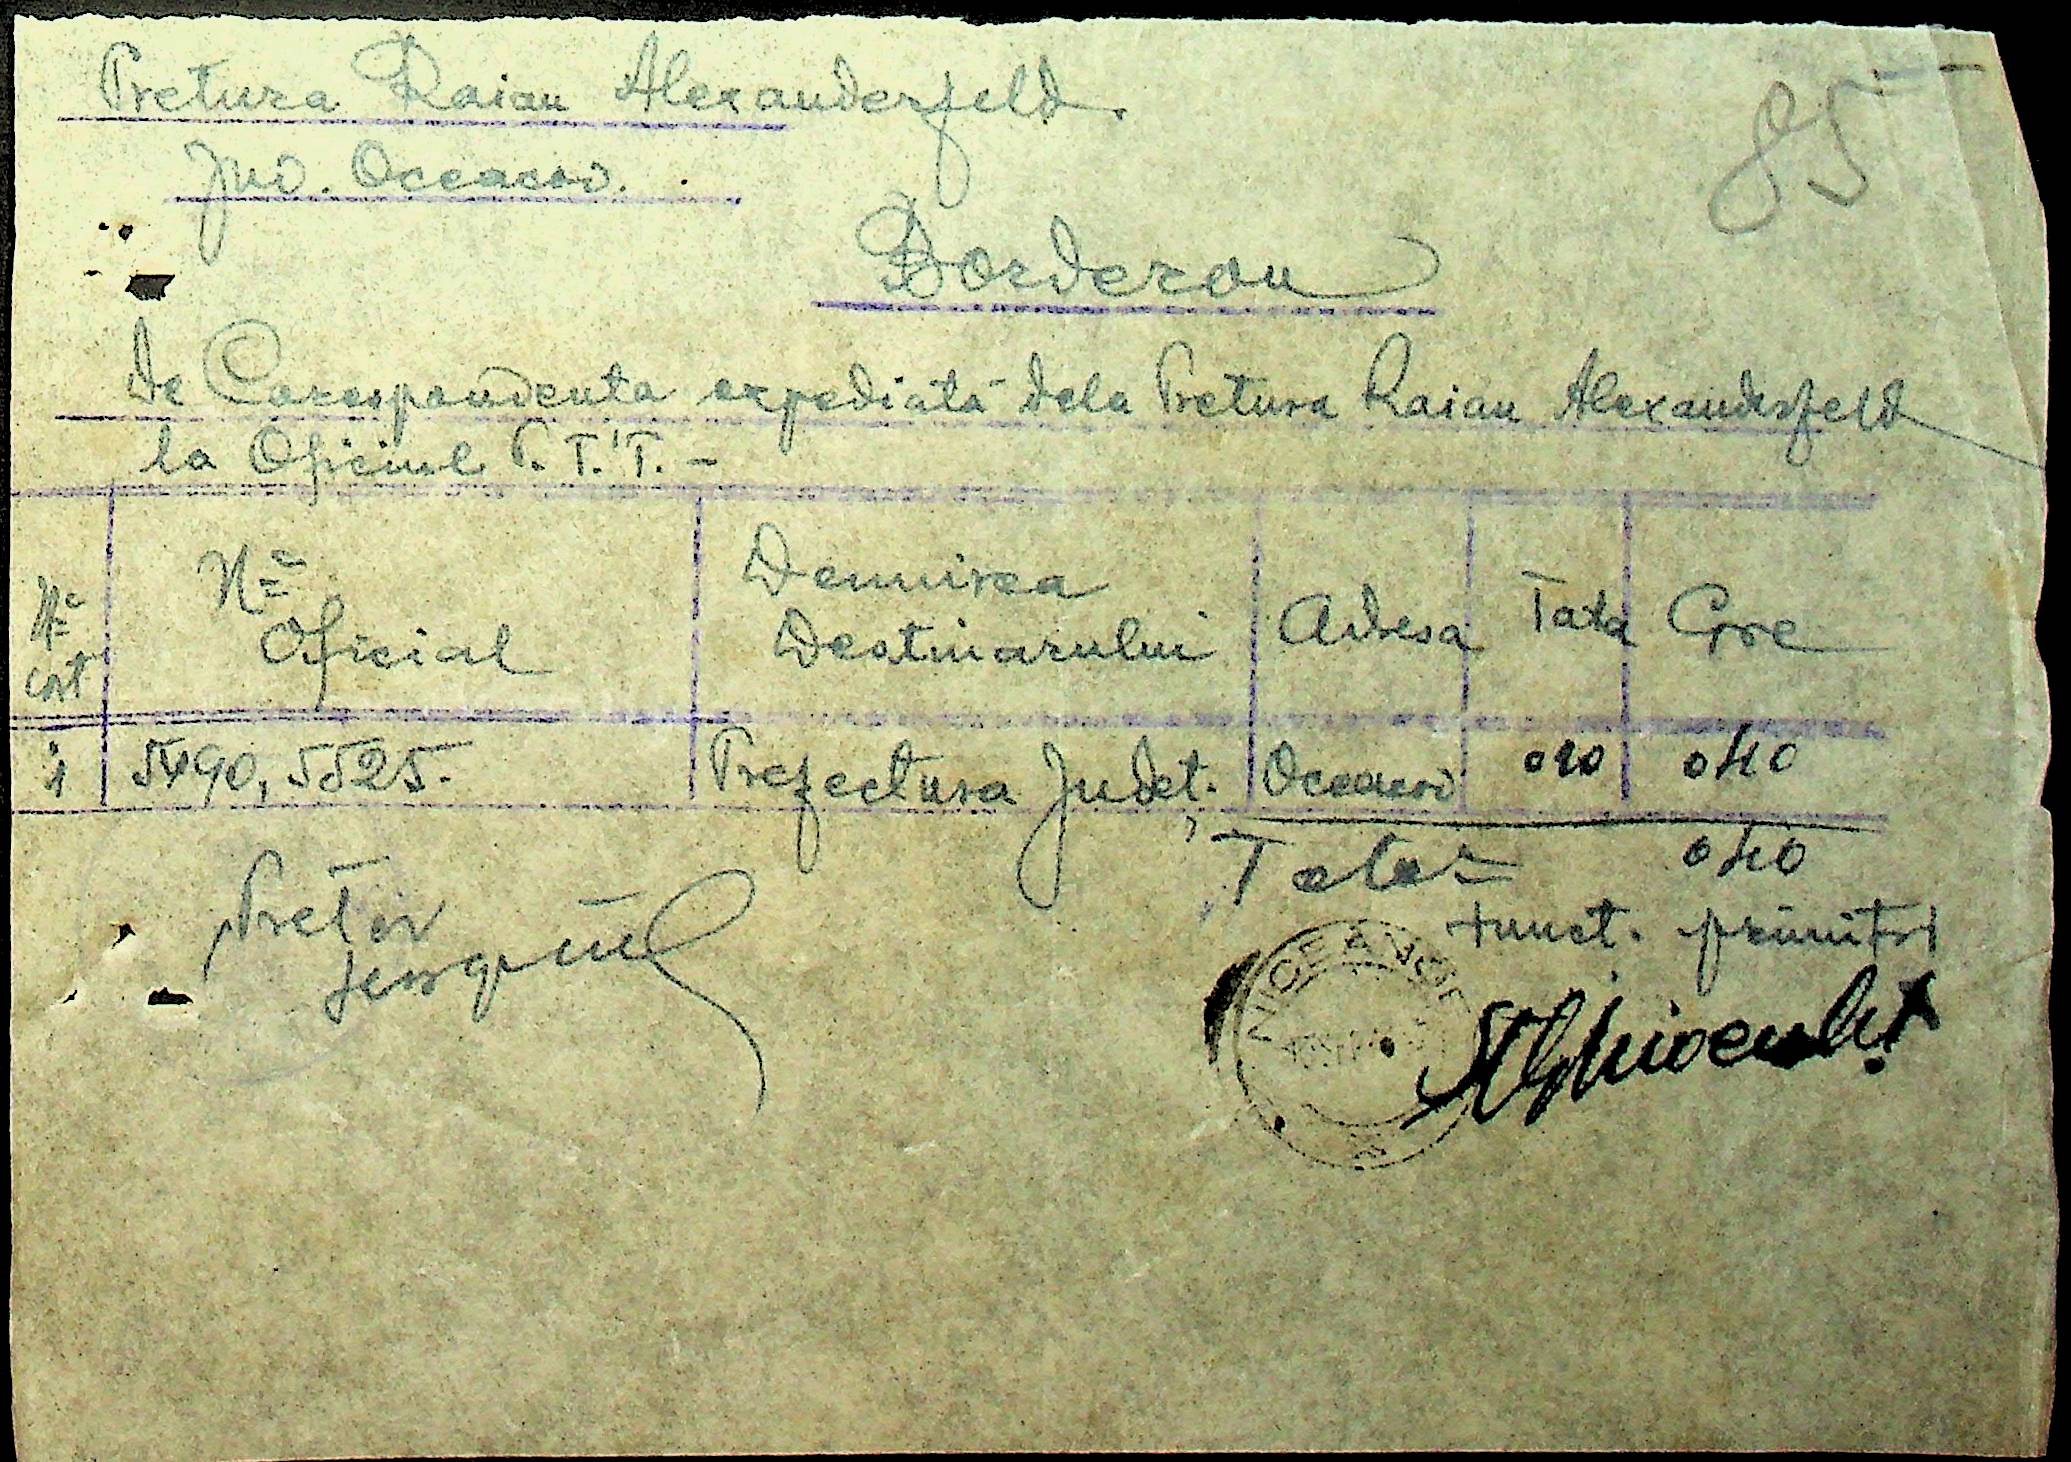 Pretura Raian Alexanderfeld.
85
Jud. Oceacov.
Borderou
de Corespondenta expediată dela Pretura Raian Alexanderfeld
la Oficiul P.T.T. -
No crt
No Oficial
Denumirea Destinarului
Adresa
Tata
Gre
1 5490, 5525. Prefectura Judet. Oceacov 020 040
Total 040
Pretor
Funct. primitor